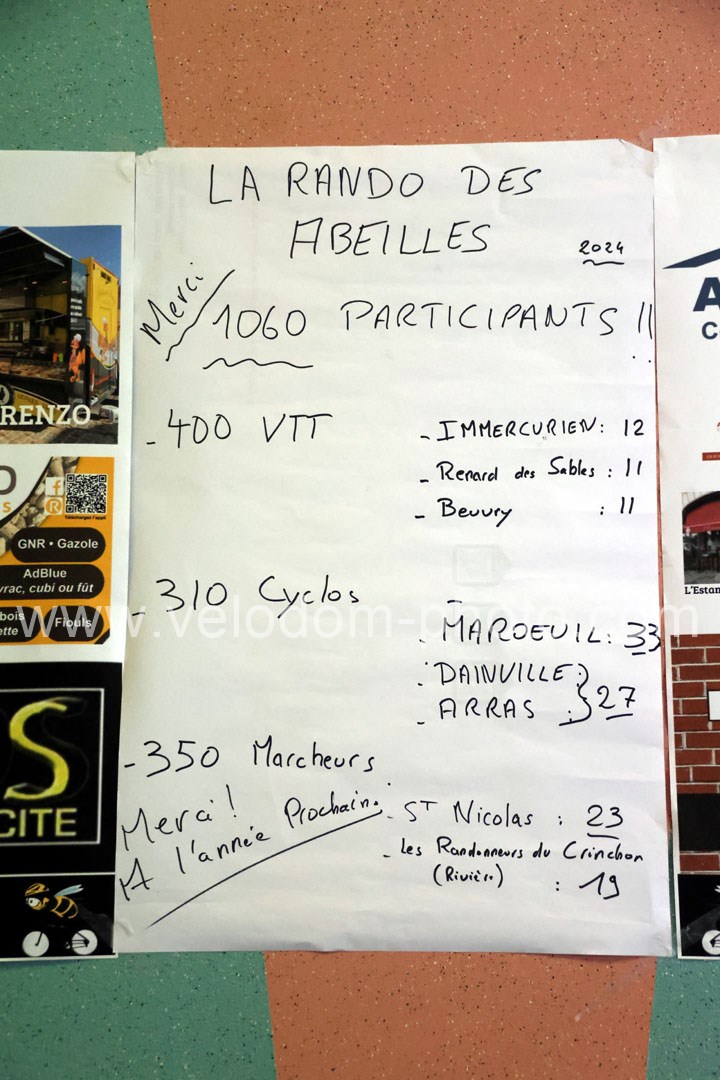 LA RANDO DES
ABEILLES 2024
Merci
1060 PARTICIPANTS !!
- 400 VTT
- IMMERCURIEN: 12
- Renard des Sables : 11
- Beuvry : 11
- 310 Cyclos
- MAROEUIL: 33
- DAINVILLE :
- ARRAS : } 27
- 350 Marcheurs
Merci!
A l'année Prochaine.
- ST Nicolas : 23
- Les Randonneurs du Crinchon
(Rivière) : 19
RENZO
Téléchargez l'appli
GNR • Gazole
AdBlue
vrac, cubi ou fût
bois
ette
Fiouls
S
CITE
A
C
L'Estan
www.velodom-photo.com